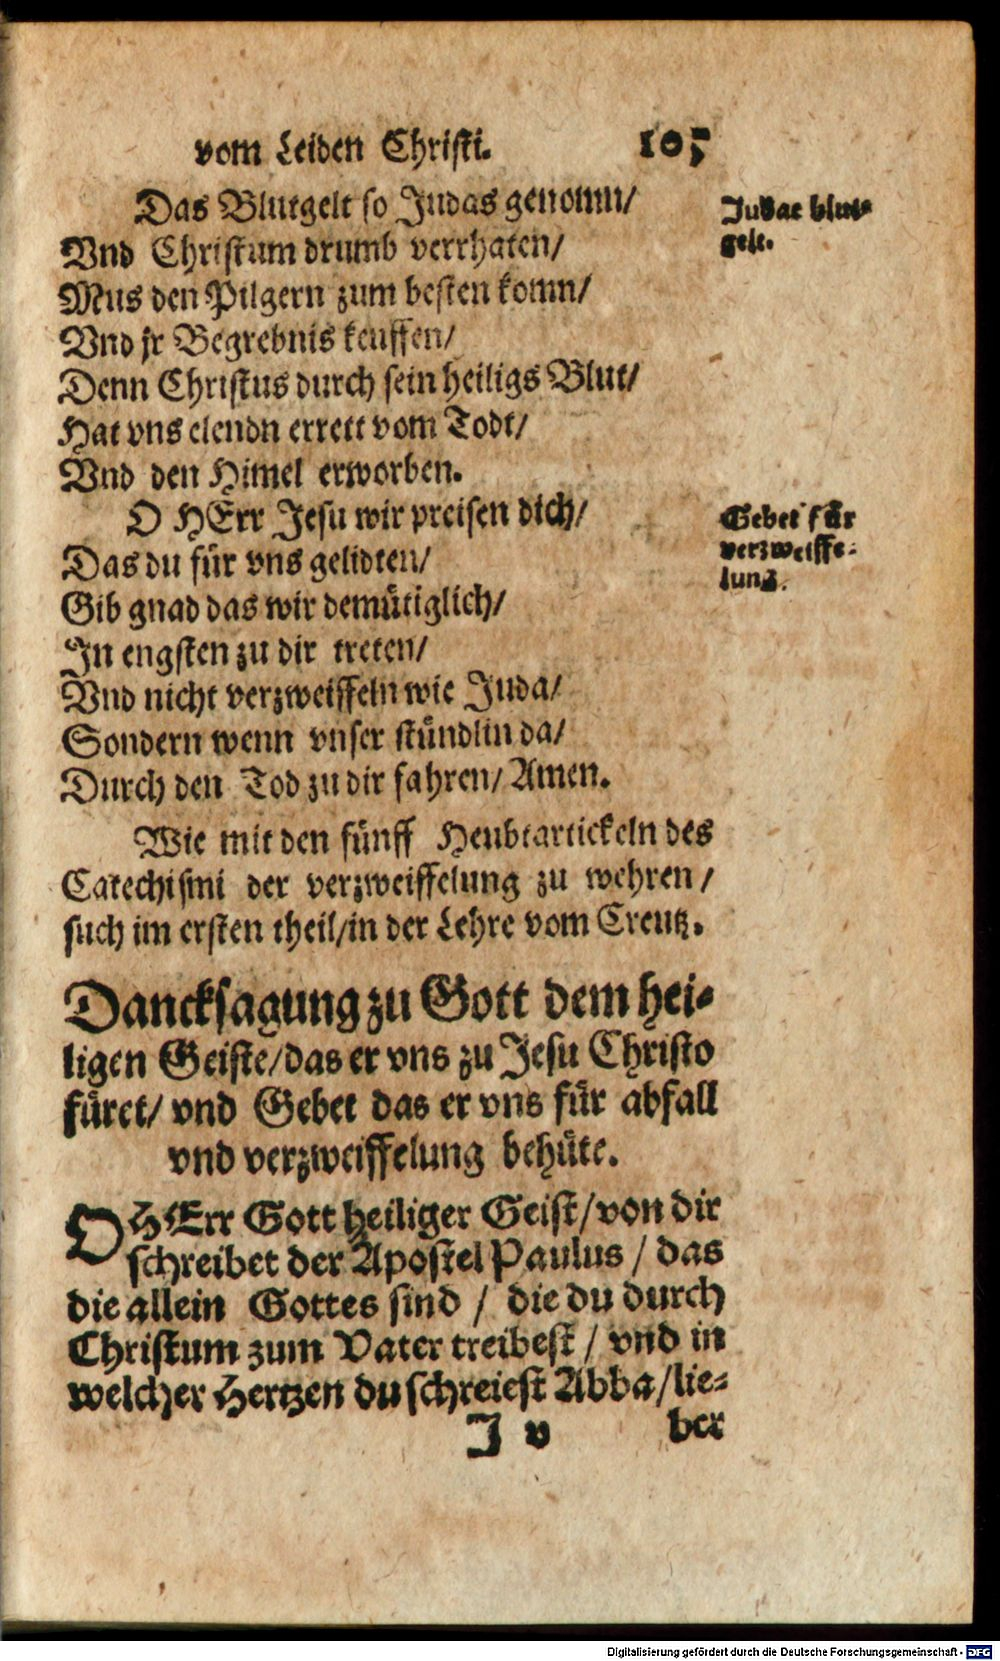 vom Leiden Christi. 105
Das Blutgelt so Judas genomn/
Vnd Christum drumb verrhaten/
Mus den Pilgern zum besten komn/
Vnd jr Begrebnis keuffen/
Denn Christus durch sein heiligs Blut/
Hat vns elendn errett vom Todt/
Vnd den Himel erworben.
Judae blut-
gelt.
O HErr Jesu wir preisen dich/
Das du für vns gelidten/
Gib gnad das wir demütiglich/
In engsten zu dir treten/
Vnd nicht verzweiffeln wie Juda/
Sondern wenn vnser stündlin da/
Durch den Tod zu dir fahren/ Amen.
Gebet für
verzweiffe-
lung.
Wie mit den fünff Heubtartickeln des
Catechismi der verzweiffelung zu wehren/
such im ersten theil/in der Lehre vom Creutz.
Dancksagung zu Gott dem hei-
ligen Geiste/das er vns zu Jesu Christo
füret/ vnd Gebet das er vns für abfall
vnd verzweiffelung behüte.
O HErr Gott heiliger Geist/von dir
schreibet der Apostel Paulus/ das
die allein Gottes sind/ die du durch
Christum zum Vater treibest/ vnd in
welcher Hertzen du schreiest Abba/lie-
J v ber
Digitalisierung gefördert durch die Deutsche Forschungsgemeinschaft - DFG